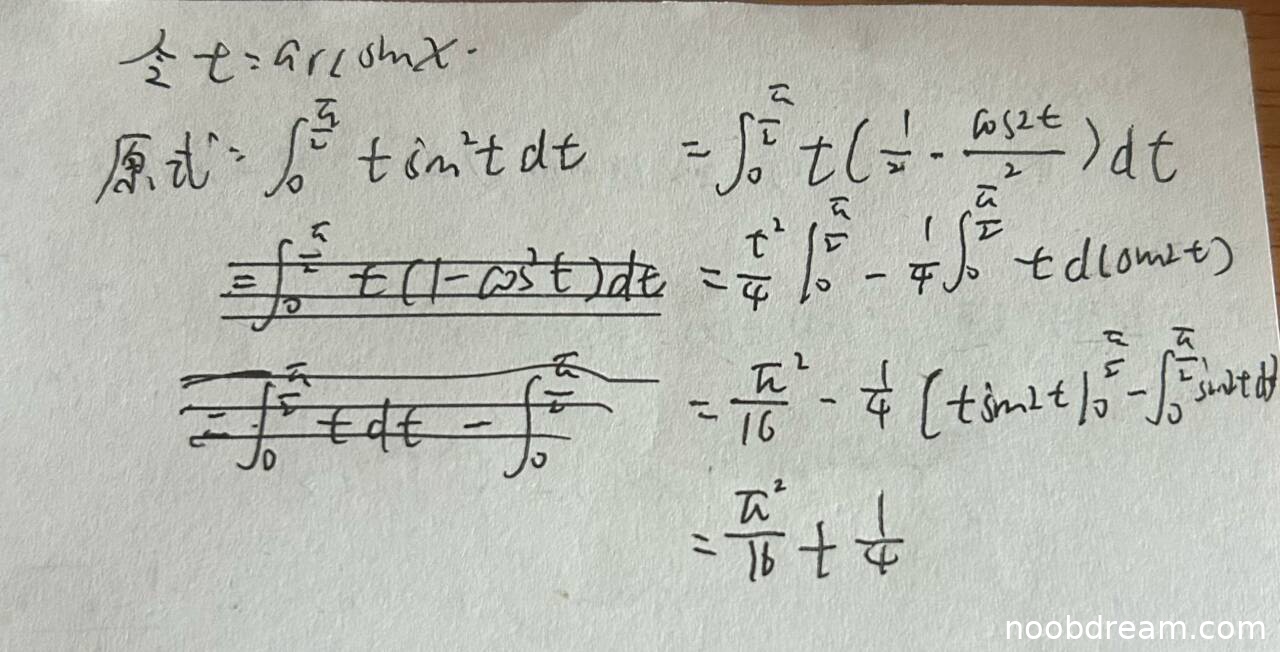 令 t = arcsinx.
原式 = ∫₀^(π/2) t sin²t dt = ∫₀^(π/2) t(1/2 - cos2t/2)dt
= ∫₀^(π/2) t(1-cos²t)dt
= ∫₀^(π/2) t dt - ∫₀^(π/2)
= t²/4 |₀^(π/2) - 1/4 ∫₀^(π/2) t d(sin2t)
= π²/16 - 1/4 [t sin2t |₀^(π/2) - ∫₀^(π/2) sin2t dt
= π²/16 + 1/4
noobdream.com